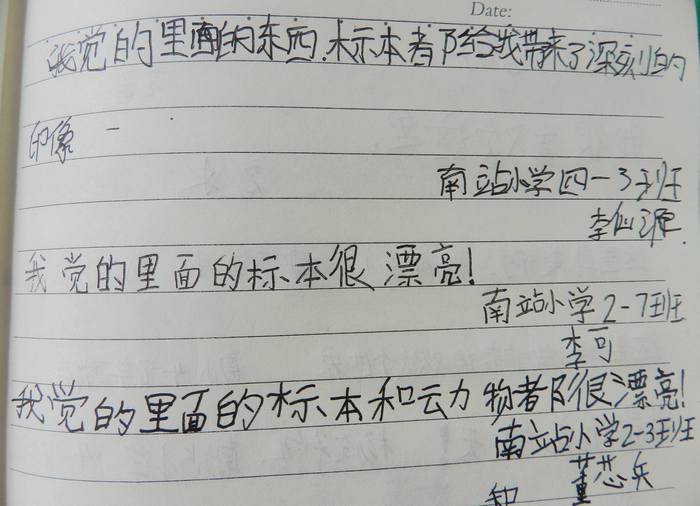 Date:
我觉的里面的东西.标本者阝给我带来了深刻的
印像一
南站小学四一3班
李仙源
我觉的里面的标本很漂亮!
南站小学2-7班
李可
我觉的里面的标本和动物者阝很漂亮!
南站小学2-3班
董芯兵
和